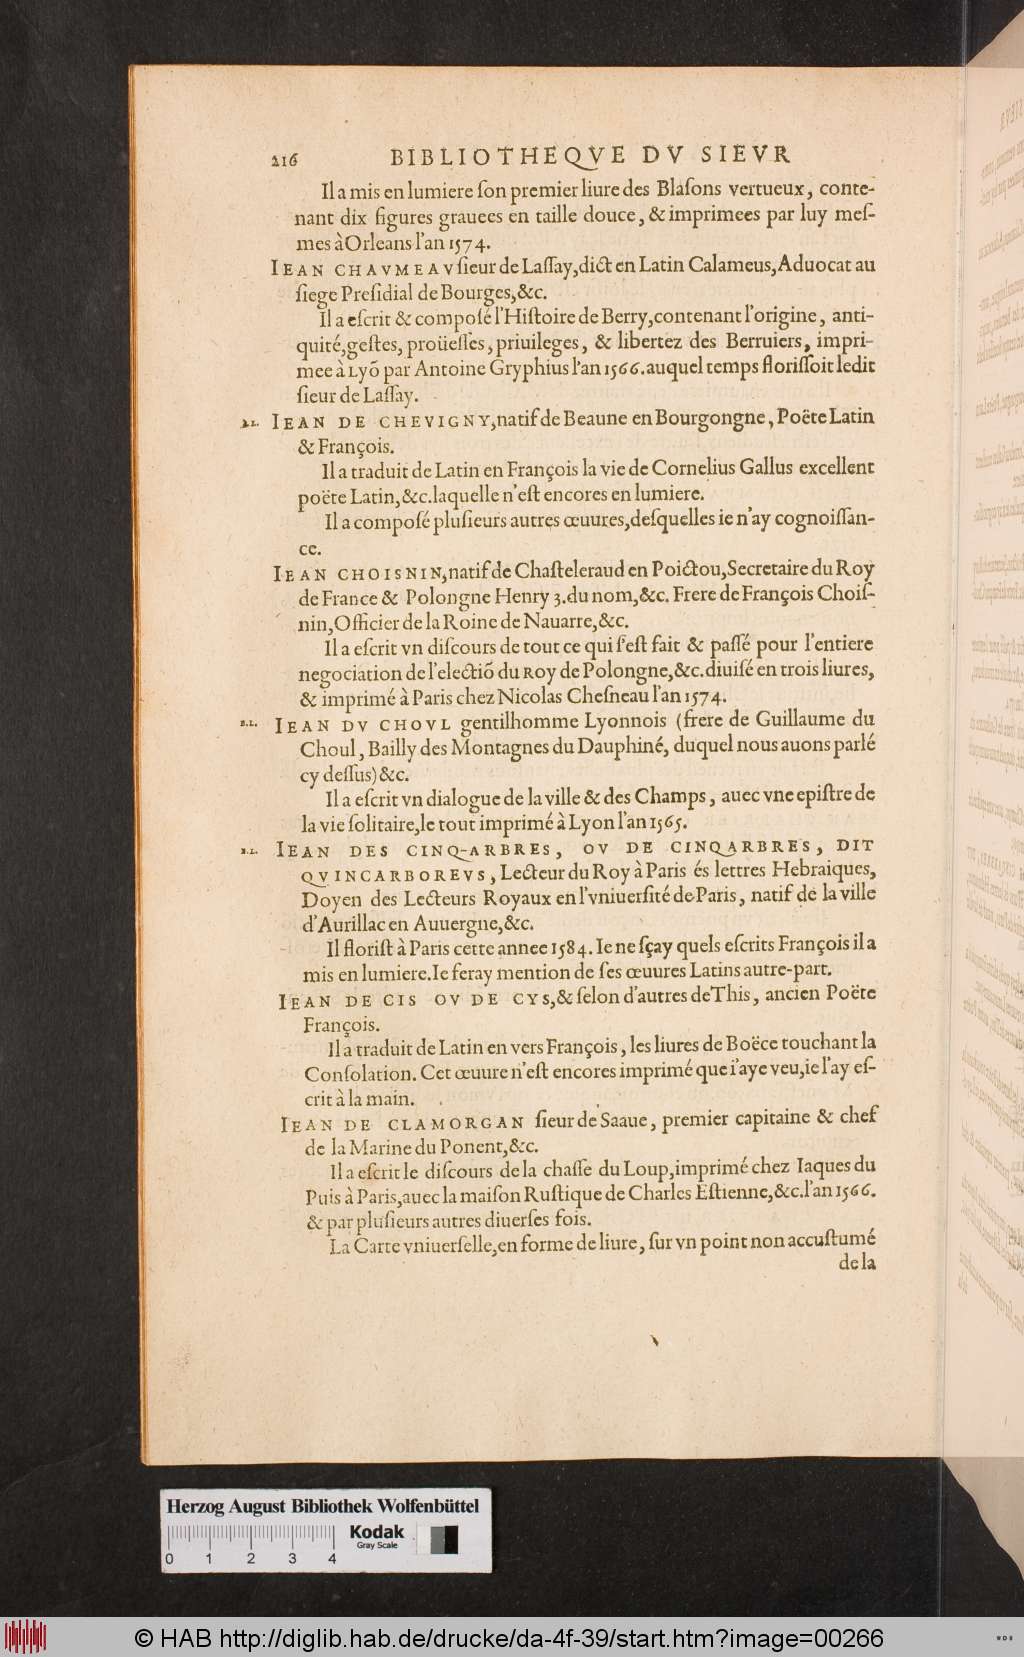 216 BIBLIOTHEQVE DV SIEVR
Il a mis en lumiere ſon premier liure des Blaſons vertueux, conte-
nant dix figures grauees en taille douce, & imprimees par luy meſ-
mes à Orleans l'an 1574.
IEAN CHAVMEAV ſieur de Laſſay, dict en Latin Calameus, Aduocat au
ſiege Preſidial de Bourges, &c.
Il a eſcrit & compoſé l'Hiſtoire de Berry, contenant l'origine, anti-
quité, geſtes, proüeſſes, priuileges, & libertez des Berruiers, impri-
mee à Lyõ par Antoine Gryphius l'an 1566. auquel temps floriſſoit ledit
ſieur de Laſſay.
IEAN DE CHEVIGNY, natif de Beaune en Bourgongne, Poëte Latin
& François.
Il a traduit de Latin en François la vie de Cornelius Gallus excellent
poëte Latin, &c. laquelle n'eſt encores en lumiere.
Il a compoſé pluſieurs autres œuures, deſquelles ie n'ay cognoiſſan-
ce.
IEAN CHOISNIN, natif de Chaſteleraud en Poictou, Secretaire du Roy
de France & Polongne Henry 3. du nom, &c. Frere de François Choiſ-
nin, Officier de la Roine de Nauarre, &c.
Il a eſcrit vn diſcours de tout ce qui ſ'eſt fait & paſſé pour l'entiere
negociation de l'electiõ du Roy de Polongne, &c. diuiſé en trois liures,
& imprimé à Paris chez Nicolas Cheſneau l'an 1574.
B.L. IEAN DV CHOVL gentilhomme Lyonnois (frere de Guillaume du
Choul, Bailly des Montagnes du Dauphiné, duquel nous auons parlé
cy deſſus) &c.
Il a eſcrit vn dialogue de la ville & des Champs, auec vne epiſtre de
la vie ſolitaire, le tout imprimé à Lyon l'an 1565.
B.L. IEAN DES CINQ-ARBRES, OV DE CINQARBRES, DIT
QVINCARBOREVS, Lecteur du Roy à Paris és lettres Hebraiques,
Doyen des Lecteurs Royaux en l'vniuerſité de Paris, natif de la ville
d'Aurillac en Auuergne, &c.
Il floriſt à Paris cette annee 1584. Ie ne ſçay quels eſcrits François il a
mis en lumiere. Ie feray mention de ſes œuures Latins autre-part.
IEAN DE CIS OV DE CYS, & ſelon d'autres de This, ancien Poëte
François.
Il a traduit de Latin en vers François, les liures de Boëce touchant la
Conſolation. Cet œuure n'eſt encores imprimé que i'aye veu, ie l'ay eſ-
crit à la main.
IEAN DE CLAMORGAN ſieur de Saaue, premier capitaine & chef
de la Marine du Ponent, &c.
Il a eſcrit le diſcours de la chaſſe du Loup, imprimé chez Iaques du
Puis à Paris, auec la maiſon Ruſtique de Charles Eſtienne, &c. l'an 1566.
& par pluſieurs autres diuerſes fois.
La Carte vniuerſelle, en forme de liure, ſur vn point non accuſtumé
de la
Herzog August Bibliothek Wolfenbüttel
0 1 2 3 4
Kodak
Gray Scale
© HAB http://diglib.hab.de/drucke/da-4f-39/start.htm?image=00266